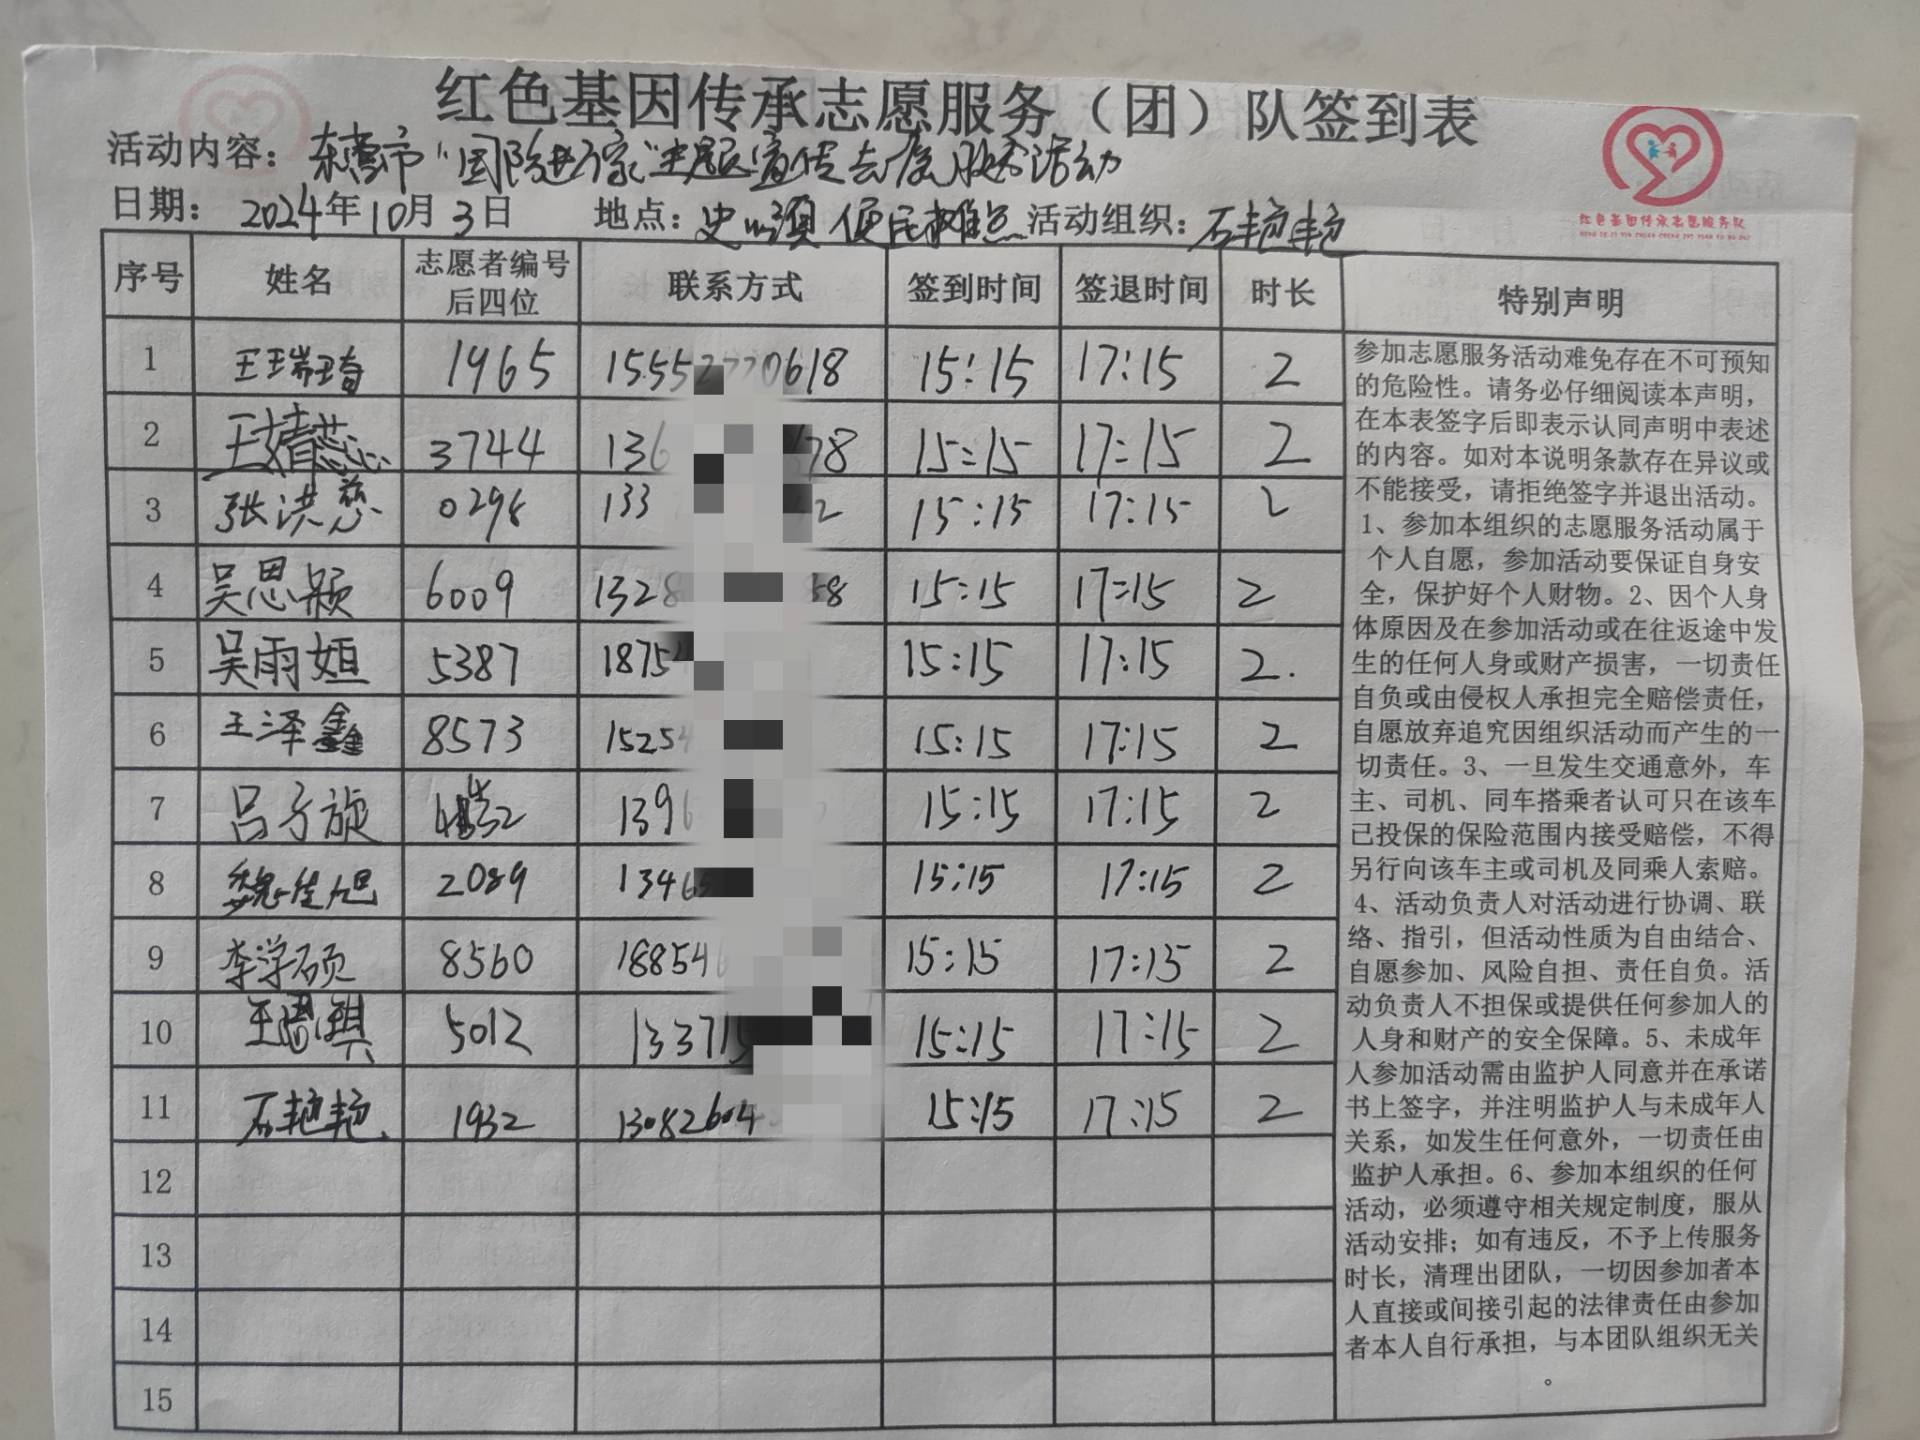 红色基因传承志愿服务（团）队签到表
活动内容：东营市"国防进万家"主题宣传志愿服务活动
日期：2024年10月3日 地点：史口镇便民摊点 活动组织：石艳艳
红色基因传承志愿服务队
序号 姓名 志愿者编号后四位 联系方式 签到时间 签退时间 时长 特别声明
1 王瑞琦 1965 15:15 17:15 2
2 王婧蕊 3744 136 78 15:15 17:15 2
3 张洪慈 0298 133 2 15:15 17:15 2
4 吴思颖 6009 1328 58 15:15 17:15 2
5 吴雨姮 5387 1875 15:15 17:15 2.
6 王泽鑫 8573 15254 15:15 17:15 2
7 吕子旋 139 15:15 17:15 2
8 魏佳旭 2089 1346 15:15 17:15 2
9 李学硕 8560 18854 15:15 17:15 2
10 5012 133715 15:15 17:15 2
11 石艳艳 1932 13082604 15:15 17:15 2
12
13
14
15
参加志愿服务活动难免存在不可预知
的危险性。请务必仔细阅读本声明，
在本表签字后即表示认同声明中表述
的内容。如对本说明条款存在异议或
不能接受，请拒绝签字并退出活动。
1、参加本组织的志愿服务活动属于
个人自愿，参加活动要保证自身安
全，保护好个人财物。2、因个人身
体原因及在参加活动或在往返途中发
生的任何人身或财产损害，一切责任
自负或由侵权人承担完全赔偿责任，
自愿放弃追究因组织活动而产生的一
切责任。3、一旦发生交通意外，车
主、司机、同车搭乘者认可只在该车
已投保的保险范围内接受赔偿，不得
另行向该车主或司机及同乘人索赔。
4、活动负责人对活动进行协调、联
络、指引，但活动性质为自由结合、
自愿参加、风险自担、责任自负。活
动负责人不担保或提供任何参加人的
人身和财产的安全保障。5、未成年
人参加活动需由监护人同意并在承诺
书上签字，并注明监护人与未成年人
关系，如发生任何意外，一切责任由
监护人承担。6、参加本组织的任何
活动，必须遵守相关规定制度，服从
活动安排；如有违反，不予上传服务
时长，清理出团队，一切因参加者本
人直接或间接引起的法律责任由参加
者本人自行承担，与本团队组织无关
。